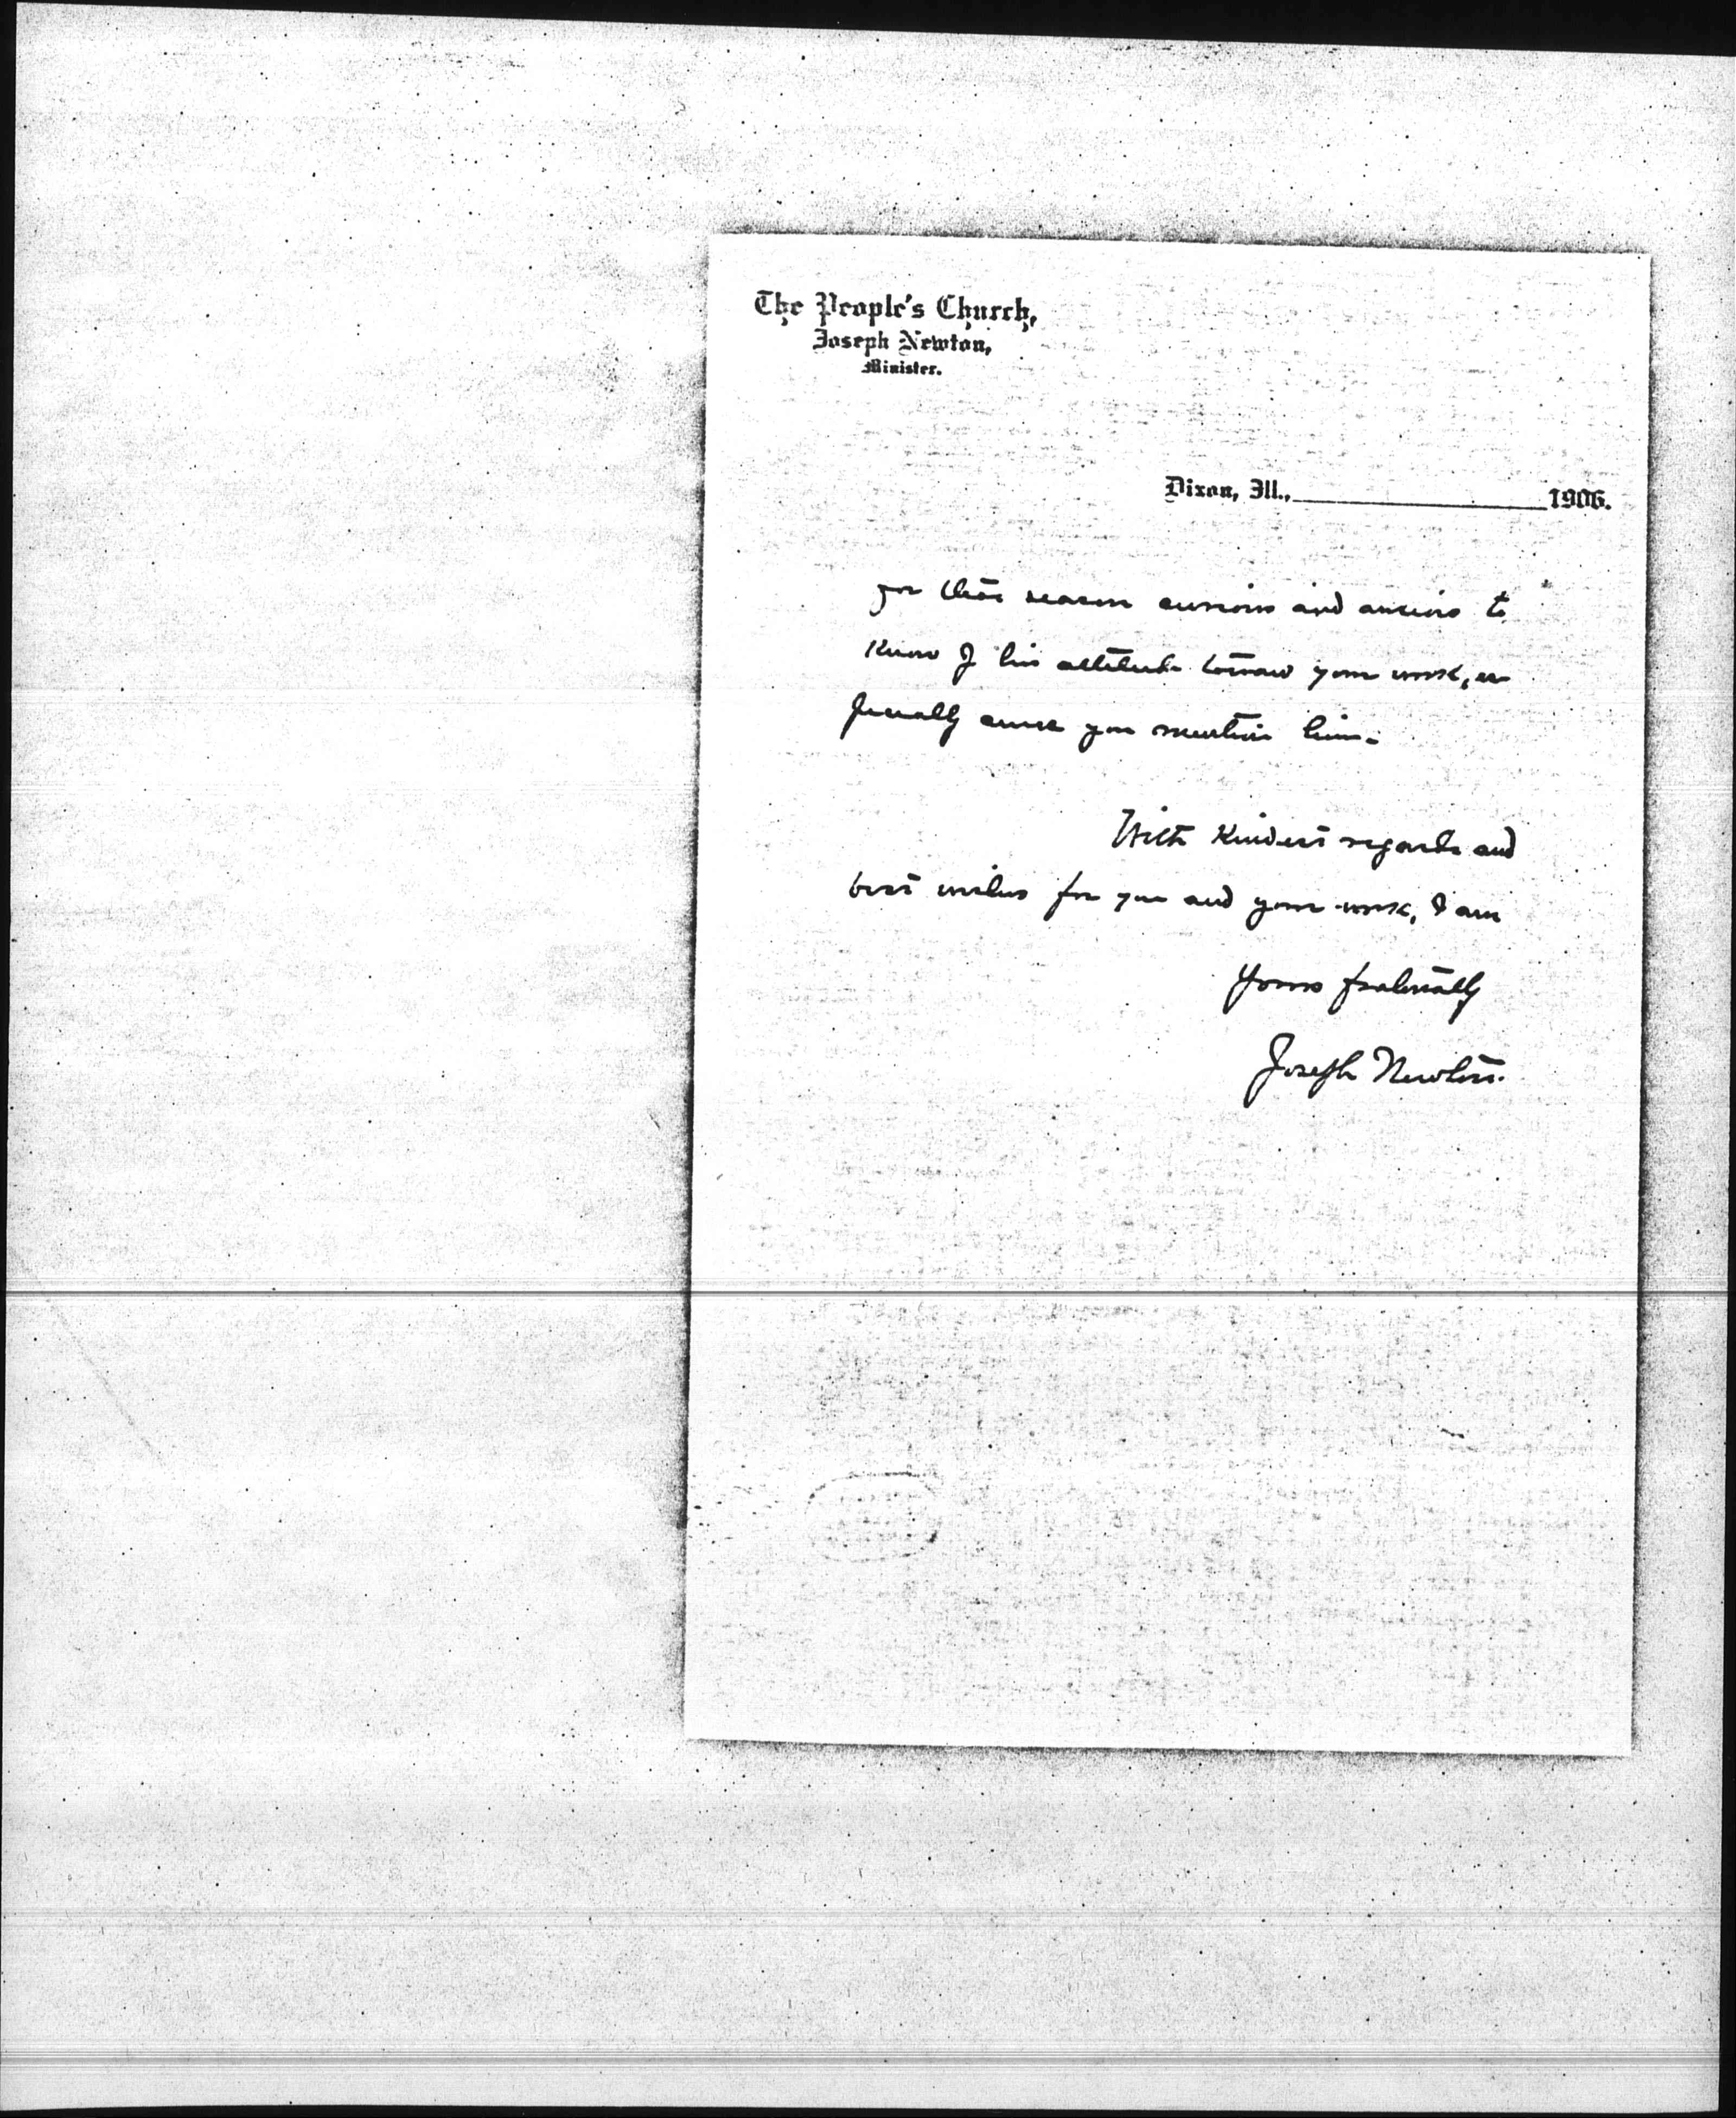 The People's Church,
Joseph Newton,
Minister.
Dixon, Ill., 1906.
for that reason curious and anxious to
know of his attitude toward your work, es
pecially since you mention him.
With kindest regards and
best wishes for you and your work, I am
Yours fraternally
Joseph Newton.